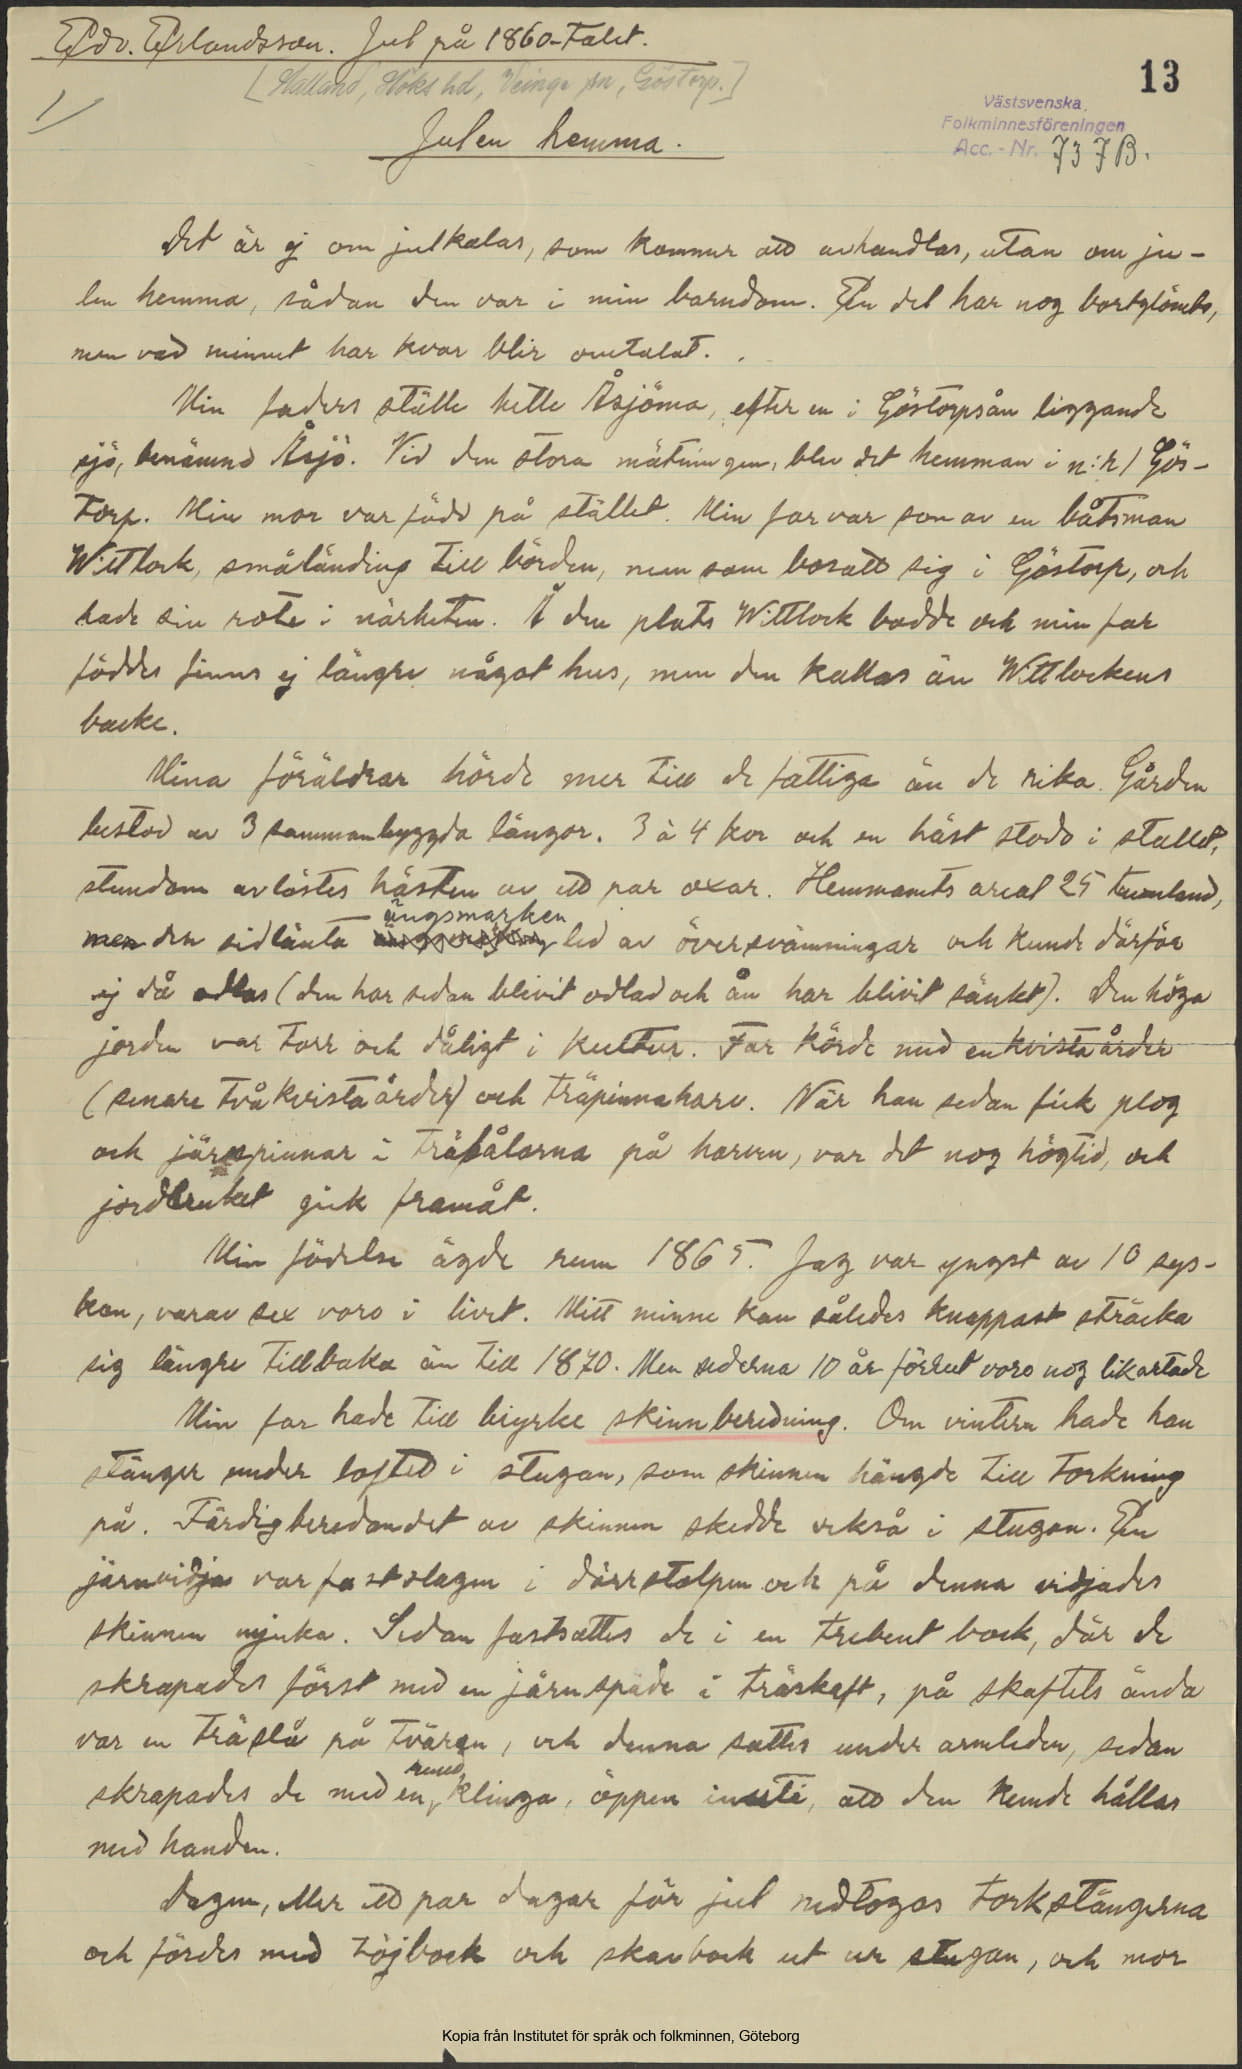 Edv. Erlandsson. Jul på 1860-talet.
[Halland, Höks hd, Veinge sn, Göstorp.]
13
1/
Västsvenska
Folkminnesföreningen
Acc. - Nr. 737B.
Julen hemma.
Det är ej om julkalas, som kommer att avhandlas, utan om ju-
len hemma, sådan den var i min barndom. En del har nog bortglömts,
men vad minnet har kvar blir omtalat.
Min faders ställe hette Åsjöma, efter en i Göstorpsån liggande
sjö, benämnd Åsjö. Vid den stora mätningen, blev det hemman i n:r 1 Gös-
torp. Min mor var född på stället. Min far var son av en båtsman
Wittlock, småländing till börden, men som bosatt sig i Göstorp, och
hade sin rote i närheten. Å den plats Wittlock bodde och min far
föddes finns ej längre något hus, men den kallas än Wittlockens
backe.
Mina föräldrar hörde mer till de fattiga än de rika. Gården
bestod av 3 sammanbyggda längor. 3 à 4 kor och en häst stodo i stallet,
stundom avlöstes hästen av ett par oxar. Hemmanets areal 25 tunnland,
men den sidlänta ängsmarken led av översvämningar och kunde därför
ej då odlas (den har sedan blivit odlad och ån har blivit sänkt). Den höga
jorden var torr och dåligt i kultur. Far körde med enkvistaårder
(senare tvåkvistaårder) och träpinnaharv. När han sedan fick plog
och järnpinnar i träbålarna på harven, var det nog högtid, och
jordbruket gick framåt.
Min födelse ägde rum 1865. Jag var yngst av 10 sys-
kon, varav sex voro i livet. Mitt minne kan således knappast sträcka
sig längre tillbaka än till 1870. Men sederna 10 år förrut voro nog likartade
Min far hade till biyrke skinnberedning. Om vintern hade han
stänger under loftet i stugan, som skinnen hängde till torkning
på. Färdigberedandet av skinnen skedde också i stugan. En
järnvidja var fastslagen i dörrstolpen och på denna vidjades
skinnen mjuka. Sedan fastsattes de i en trebent bock, där de
skrapades först med en järnspade i träskaft, på skaftets ända
var en träslå på tvären, och denna sattes under armleden, sedan
skrapades de med en rund klinga, öppen inuti, att den kunde hållas
med handen.
Dagen, eller ett par dagar för jul nedtogos torkstängerna
och fördes med töjbock och skavbock ut ur stugan, och mor
Kopia från Institutet för språk och folkminnen, Göteborg